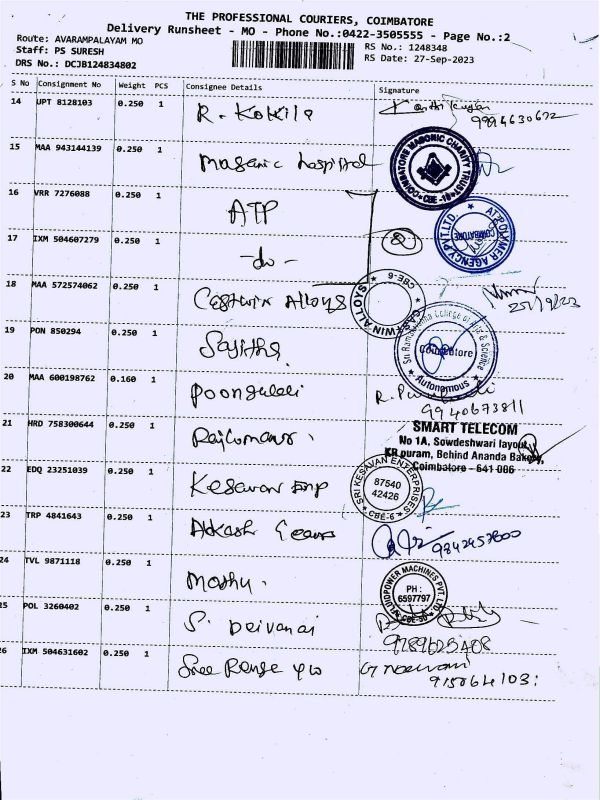 THE PROFESSIONAL COURIERS, COIMBATORE
Delivery Runsheet - MO - Phone No.:0422-3505555 - Page No.:2
Route: AVARAMPALAYAM MO
Staff: PS SURESH
DRS No.: DCJB124834802
RS No.: 1248348
RS Date: 27-Sep-2023
S No Consignment No Weight PCS Consignee Details Signature
14 UPT 8128103 0.250 1 R. Kokila
15 MAA 943144139 0.250 1 Masonic hospital
COIMBATORE MASONIC CHARITY TRUST CBE-18
16 VRR 7276088 0.250 1 ATP
ATP POLYMER AGENCY PVT. LTD. COIMBATORE
17 IXM 504607279 0.250 1 -do-
18 MAA 572574062 0.250 1 Alloys
WIN ALLOYS CBE-6
19 PON 850294 0.250 1 Sajitha
Sri Ramakrishna College of Arts & Science
Coimbatore
Autonomous
20 MAA 600198762 0.160 1
9940673811
21 HRD 758300644 0.250 1 Rajkumar
SMART TELECOM
No 1A, Sowdeshwari layout,
KR puram, Behind Ananda Bakery,
Coimbatore - 641 006
22 EDQ 23251039 0.250 1 Kesavan Enp
SRI KESAVAN ENTERPRISES
87540
42426
CBE-6
23 TRP 4841643 0.250 1 Aakash Gears
24 TVL 9871118 0.250 1 Madhu
FLUIDPOWER MACHINES PVT. LTD
PH :
6597797
25 POL 3260402 0.250 1 S. Deivanai
26 IXM 504631602 0.250 1 Sree Renge